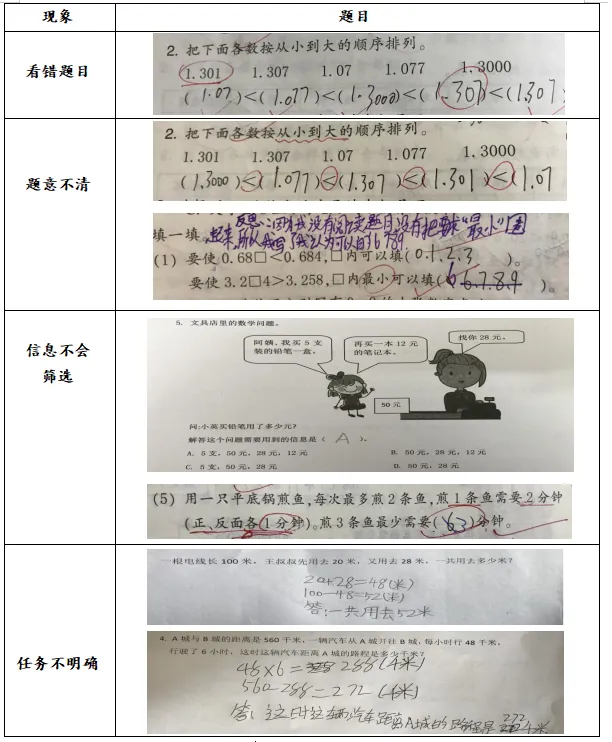 现象
题目
看错题目
2. 把下面各数按从小到大的顺序排列。
1.301 1.307 1.07 1.077 1.3000
(1.07)<(1.077)<(1.3000)<(1.307)<(1.307)
题意不清
2. 把下面各数按从小到大的顺序排列。
1.301 1.307 1.07 1.077 1.3000
(1.3000)<(1.077)<(1.307)<(1.301)<(1.07
反思:因为我没有阅读题目,没有把要求"最小"圈
填一填
起来,所以我写了我认为可以的6789
(1) 要使0.68□<0.684,□内可以填(0.1.2.3)。
要使3.2□4>3.258,□内最小可以填(6 6.7.8.9)。
信息不会
筛选
5. 文具店里的数学问题。
阿姨,我买 5 支
装的铅笔一盒。
再买一本 12 元
的笔记本。
找你 28 元。
50 元
问:小英买铅笔用了多少元?
解答这个问题需要用到的信息是( A )。
A. 5 支,50 元,28 元,12 元
B. 50 元,28 元,12 元
C. 5 支,50 元,28 元
D. 50 元,28 元
(5) 用一只平底锅煎鱼,每次最多煎2条鱼,煎1条鱼需要2分钟
(正、反面各1分钟)。煎3条鱼最少需要(63)分钟。
任务不明确
一根电线长 100 米, 王叔叔先用去 20 米, 又用去 28 米, 一共用去多少米?
20+28=48(米)
100-48=52(米)
答:一共用去52米
4. A 城与 B 城的距离是 560 千米,一辆汽车从 A 城开往 B 城,每小时行 48 千米,
行驶了 6 小时, 这时这辆汽车距离 A 城的路程是多少千米?
48×6=288(千米)
560-288=272(千米)
答:这时这辆汽车距离A城的路程是272千米